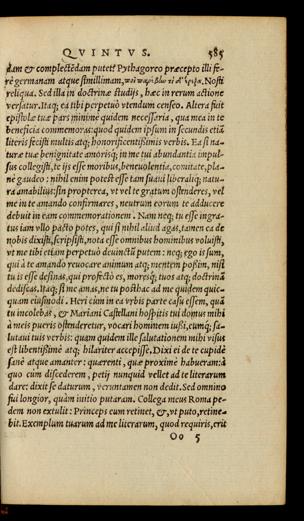 QVINTVS. 585
dam & complectẽdam putet? Pythagoreo præcepto illi fe-
rè germanam atque simillimam, Nosti
reliqua. Sed illa in doctrinæ studijs, hæc in rerum actione
versatur. Itaq; ea tibi perpetuò vtendum censeo. Altera fuit
epistolæ tuæ pars minimè quidem necessaria, qua mea in te
beneficia commemoras: quod quidem ipsum in secundis etiã
literis fecisti multis atq; honorificentißimis verbis. Ea si na-
turæ tuæ benignitate amorisq; in me tui abundantia impul-
sus collegisti, te ijs esse moribus, beneuolentia, comitate, pla-
nè gaudeo: nihil enim potest esse tam suaui liberaliq; natu-
ra amabilius: sin propterea, vt vel te gratum ostenderes, vel
me in te amando confirmares, neutrum eorum te adducere
debuit in eam commemorationem. Nam neq; tu esse ingra-
tus iam vllo pacto potes, qui si nihil aliud agas, tamen ea de
nobis dixisti, scripsisti, nota esse omnibus hominibus voluisti,
vt me tibi etiam perpetuò deuinctũ putem: neq; ego is sum,
qui à te amando reuocare animum atq; mentem poßim, nisi
tu is esse desinas, qui profectò es, moresq; tuos atq; doctrinã
dediscas. Itaq; si me amas, ne tu posthac ad me quidem quic-
quam eiusmodi. Heri cùm in ea vrbis parte casu essem, quã
tu incolebas, & Mariani Castellani hospitis tui domus mihi
à meis pueris ostenderetur, vocari hominem iußi, eumq; sa-
lutaui tuis verbis: quam quidem ille salutationem mihi visus
est libentißimè atq; hilariter accepisse. Dixi ei de te cupidè
sanè atque amanter: quærenti, quæ proximè habueram: à
quo cùm discederem, petij nunquid vellet ad te literarum
dare: dixit se daturum, veruntamen non dedit. Sed omnino
fui longior, quàm initio putaram. Collega meus Roma pe-
dem non extulit: Princeps eum retinet, &, vt puto, retine-
bit. Exemplum tuarum ad me literarum, quod requiris, erit
Oo 5